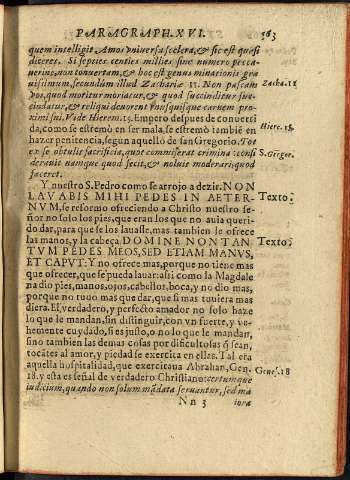 PARAGRAPH. XVI. 563
quem intelligit Amos vniuersa scelera, & sic est quasi
diceret. Si septies centies millies sine numero pecca-
uerint, non conuertam, & hoc est genus minationis gra
uissimum, secundùm illud Zachariæ 11. Non pascam Zacha. 11
vos, quod moritur moriatur, & quod succinditur suc-
cindatur, & reliqui deuorent vnusquisque carnem pro-
ximi sui. Vide Hierem. 15. Empero despues de conuersi Hiere. 15.
da, como se estremò en ser mala, se estremò tambiẽ en
hazer penitencia, segun aquello de san Gregorio. Tot
ex se obtulit sacrificia, quot commisserat crimina: con S. Gregor.
siderauit namque quod fecit, & noluit moderari quod
faceret.
Y nuestro S. Pedro como se arrojo a dezir. NON
LAVABIS MIHI PEDES IN AETER- Texto.
NVM, se reformo ofreciendo a Christo nuestro se-
ñor no solo los pies, que eran los que no auia queri-
do dar, para que se los lauasse, mas tambien le ofrece
las manos, y la cabeça. DOMINE NON TAN- Texto.
TVM PEDES MEOS, SED ETIAM MANVS,
ET CAPVT: Y no ofrece mas, porque no tiene mas
que ofrecer, que se pueda lauar: assi como la Magdale
na dio pies, manos, ojos, cabellos, boca, y no dio mas,
porque no tuuo mas que dar, que si mas tuuiera mas
diera. El verdadero, y perfecto amador no solo haze
lo que le mandan, sin distinguir, con vn fuerte, y ve-
hemente cuydado, si es justo, o no lo que le mandan,
sino tambien las demas cosas por dificultosas q̃ sean,
tocãtes al amor, y piedad se exercita en ellas. Tal era
aquella hospitalidad, que exercitaua Abrahan, Gen. Genes. 18
18. y esta es señal de verdadero Christiano:
iudicium, quando non solum mãdata seruantur, sed ma
Nn 3 iora